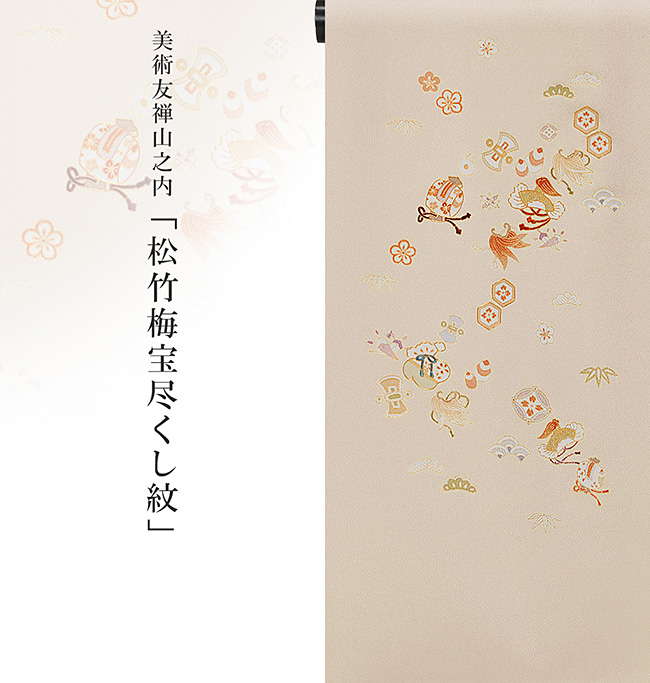 美術友禅山之内「松竹梅宝尽くし紋」